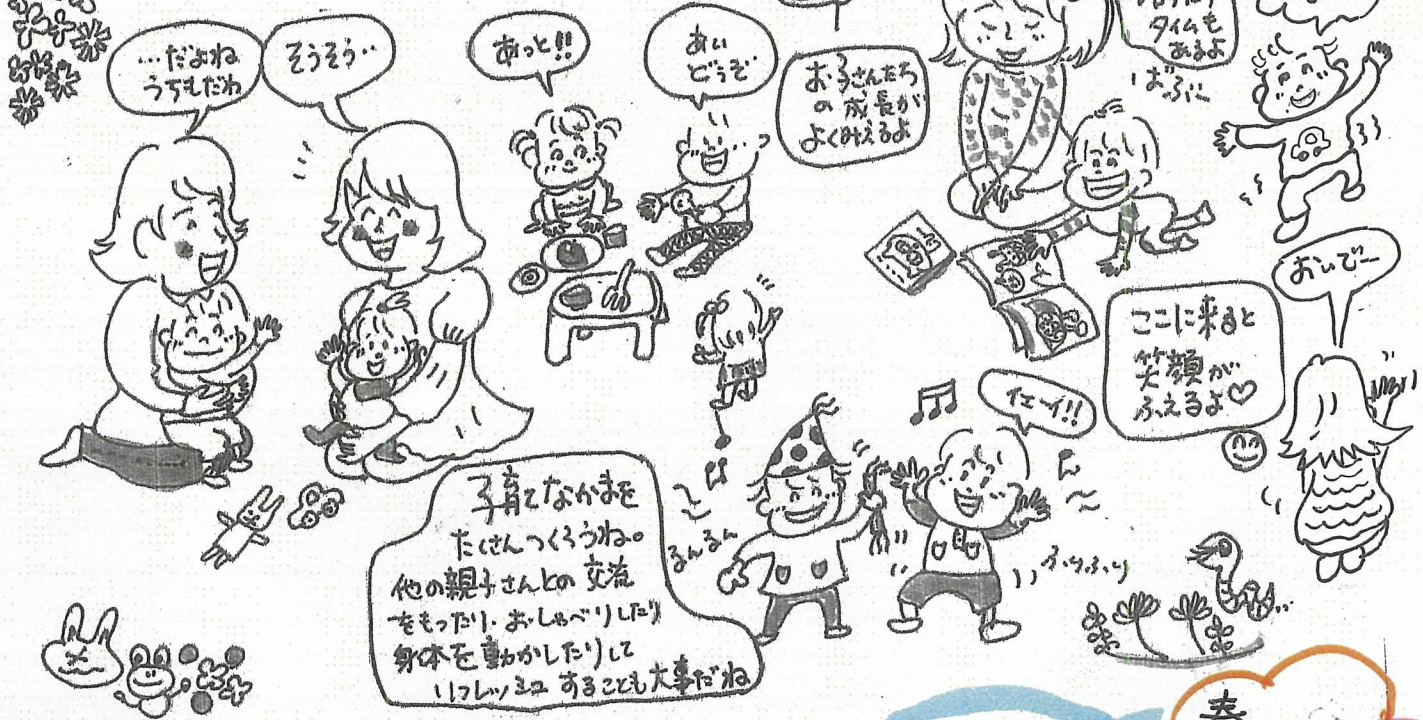 …だよね
うちもだわ
そうそう‥
あっと!!
あい
どうぞ
お子さんたち
の成長が
よくみえるよ
タイムも
あるよ
ばぶー
おいでー
ここに来ると
笑顔が
ふえるよ♡
イエーイ!!
るんるん
ふりふり
子育てなかまを
たくさんつくろうね。
他の親子さんとの交流
をもったり、おしゃべりしたり
身体を動かしたりして
リフレッシュすることも大事だね
春